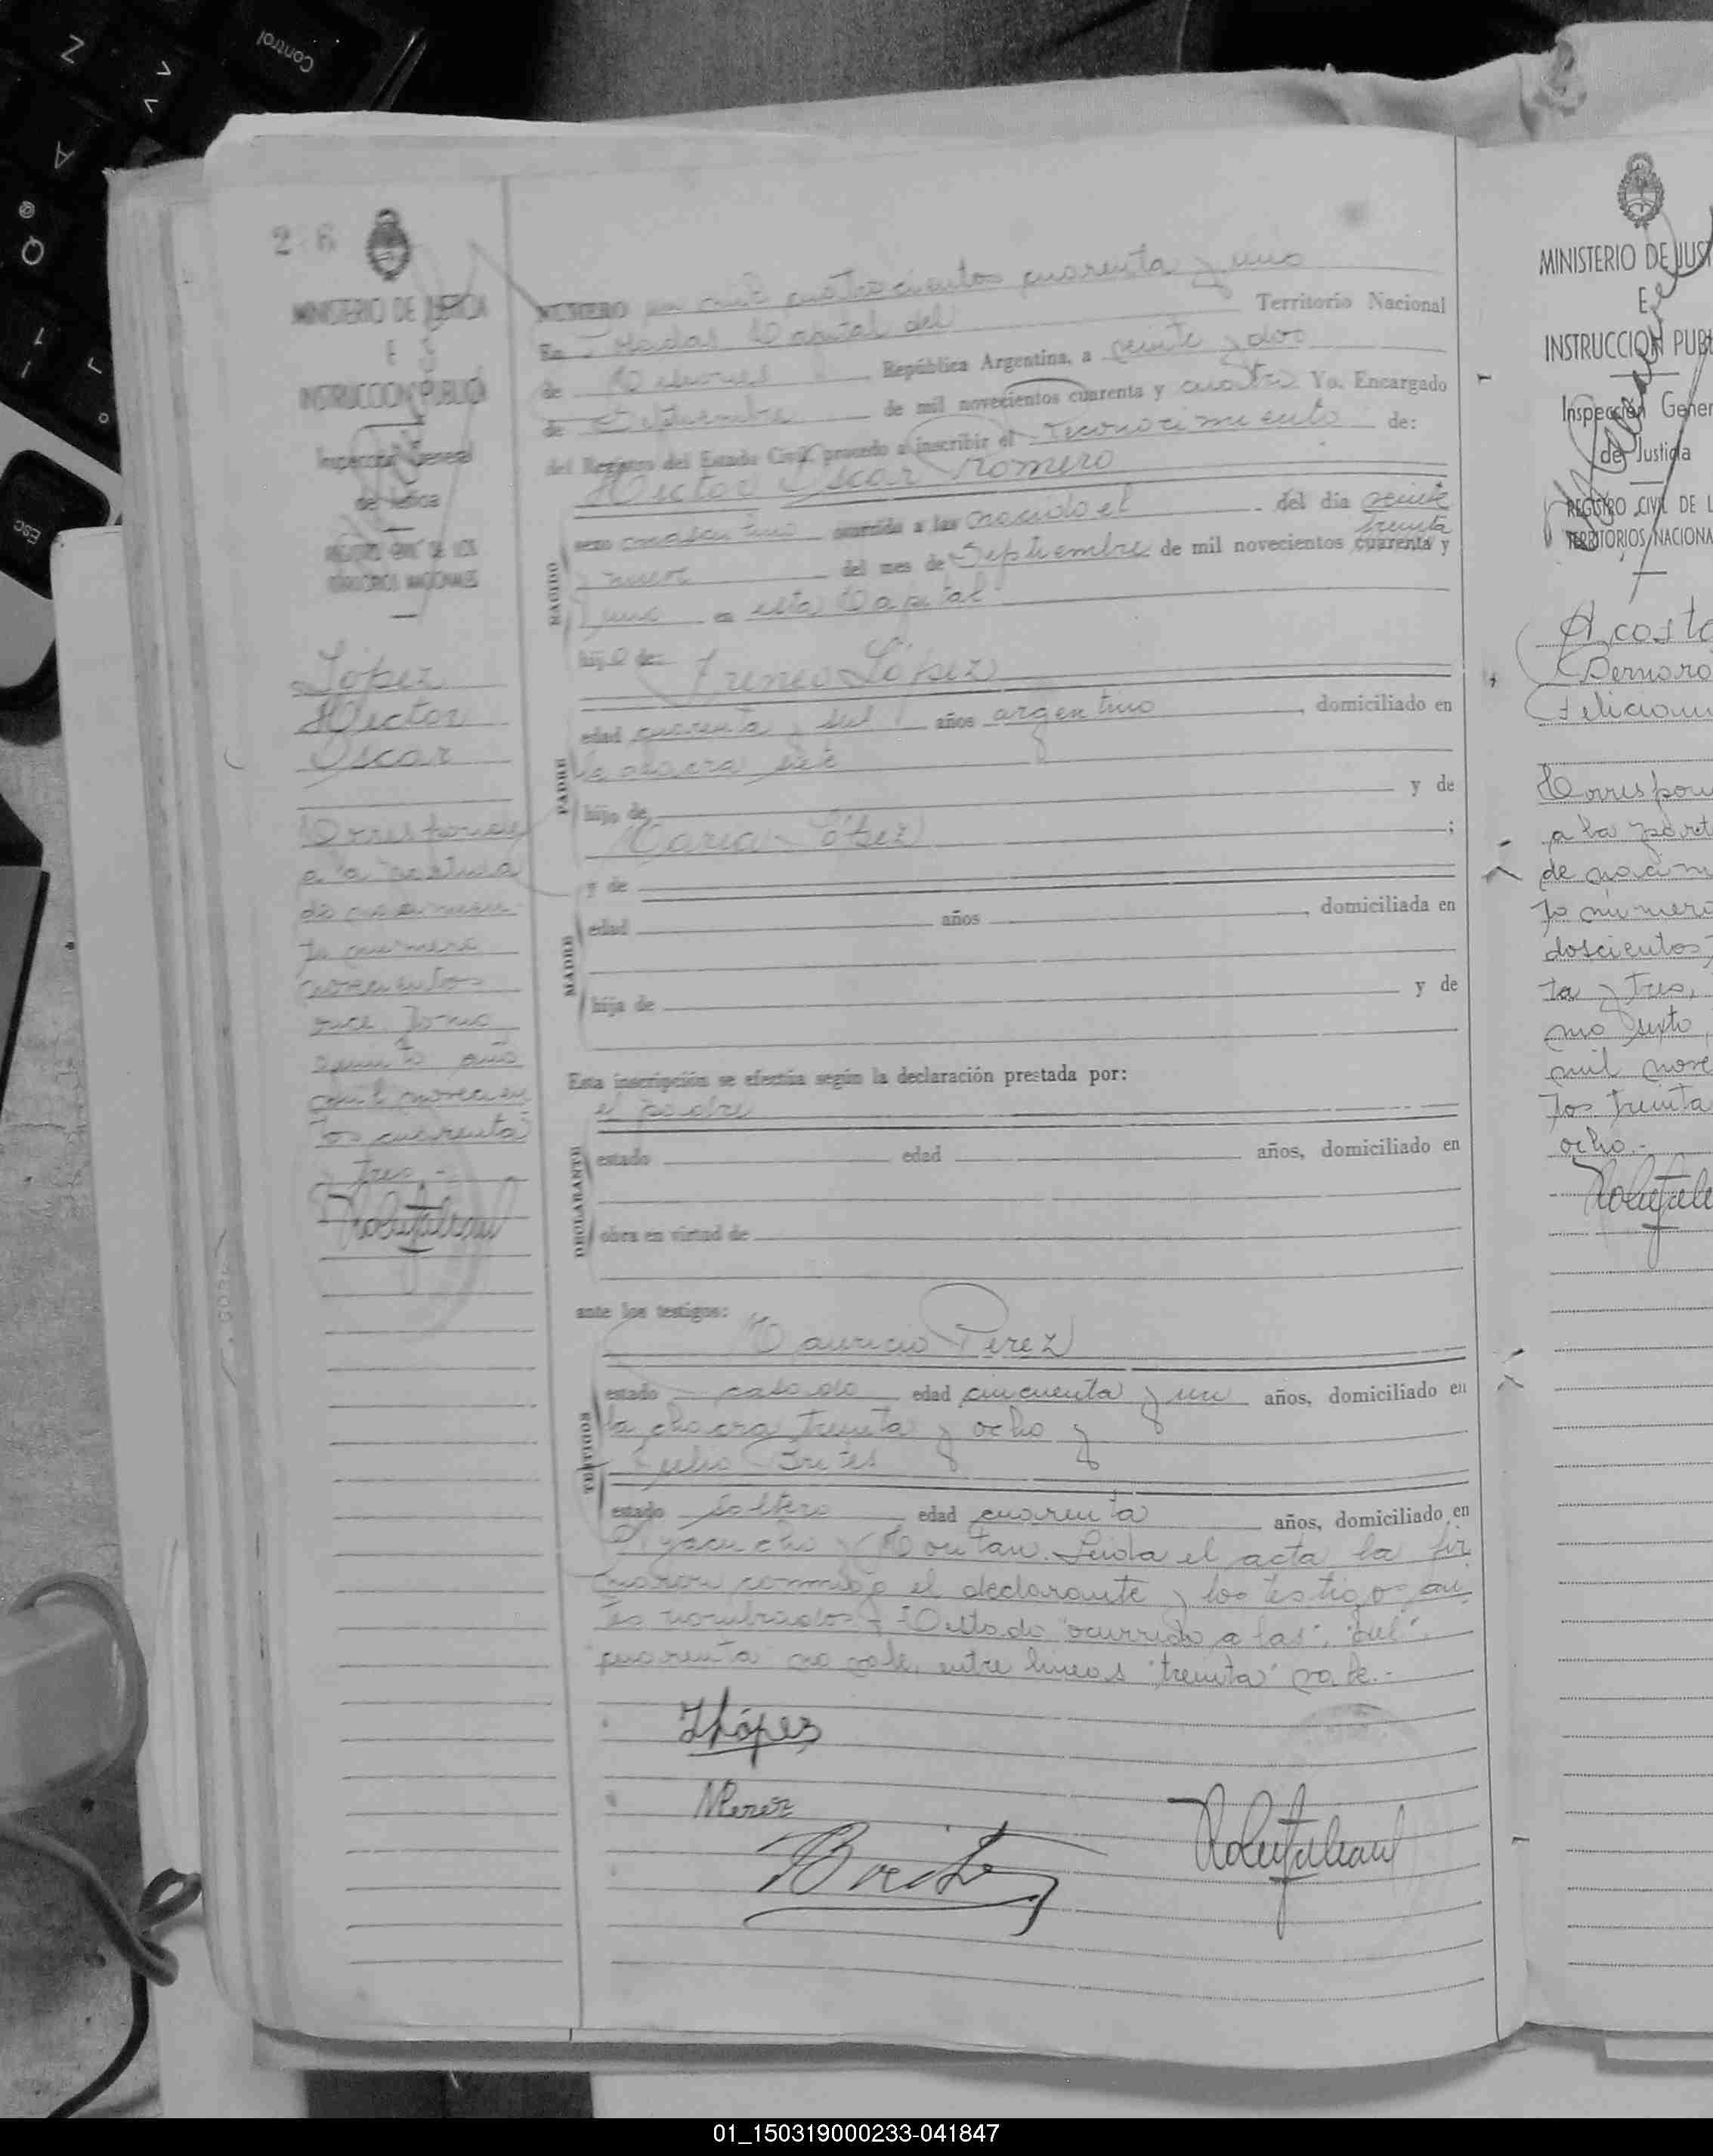 Control
Z
A
Q
Esc
2 6
MINISTERIO DE JUSTICIA
E
INSTRUCCION PUBLICA
Inspección General
de Justicia
REGISTRO CIVIL DE LOS
TERRITORIOS NACIONALES
López
Hector
Oscar
Corresponde
a la partida
de nacimien-
to número
novecientos
once Tomo
quinto año
mil novecien
tos cuarenta
y Tres.-
NUMERO un mil cuatrocientos cuarenta y uno
En Posadas Capital del Territorio Nacional
de Misiones República Argentina, a veinte y dos
de Septiembre de mil novecientos cuarenta y cuatro Yo, Encargado
del Registro del Estado Civil, procedo a inscribir el reconocimiento de:
Hector Oscar Romero
NACIDO
sexo masculino ocurrido a las nacido el del día veinte
treinta
y nueve del mes de Septiembre de mil novecientos cuarenta y
uno en esta Capital
hijo de:
Ireneo López
PADRE
edad cuarenta y seis años argentino, domiciliado en
la chacra siete
hijo de y de
Maria López ;
y de
MADRE
edad años , domiciliada en
hija de y de
Esta inscripción se efectúa según la declaración prestada por:
el padre
DECLARANTE
estado edad años, domiciliado en
obra en virtud de
ante los testigos:
Mauricio Perez
TESTIGOS
estado casado edad cincuenta y un años, domiciliado en
la chacra treinta y ocho y
Julio Brites
estado soltero edad cuarenta años, domiciliado en
Ayacucho y Roután. Leida el acta la fir
maron conmigo el declarante y los testigos an
tes nombrados.- Testado "ocurrido a las", "del",
"cuarenta" no vale, entre lineas "treinta" vale.-
ILópez
MPerez
Brites
MINISTERIO DE JUST
E
INSTRUCCION PUBL
Inspección Gener
de Justicia
REGISTRO CIVIL DE L
TERRITORIOS NACIONA
Acosta
Bernard
Felician
Correspon
a la part
de nacim
to número
doscientos
ta y tres,
mo sexto,
mil nove
tos treinta
ocho.-
01_150319000233-041847